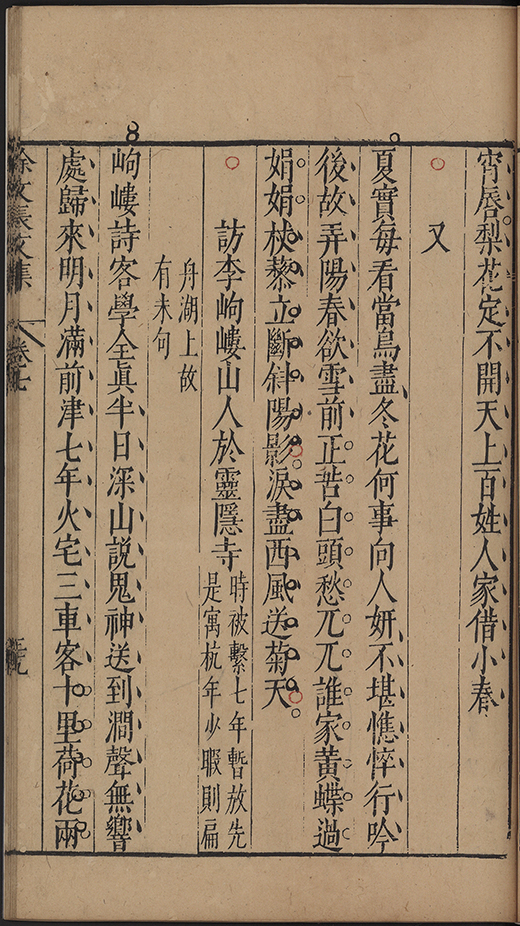 宵唇梨花定不開天上百姓人家借小春
又
夏實每看當鳥盡冬花何事向人妍不堪憔悴行吟
後故弄陽春欲雪前正苦白頭愁兀兀誰家黃蝶過
娟娟杖藜立斷斜陽影淚盡西風送菊天
訪李岣嶁山人於靈隱寺
時被繫七年暫放先
是寓杭年少暇則扁
舟湖上故
有末句
岣嶁詩客學全眞半日深山說鬼神送到澗聲無響
處歸來明月滿前津七年火宅三車客十里荷花兩
徐文長文集 卷七